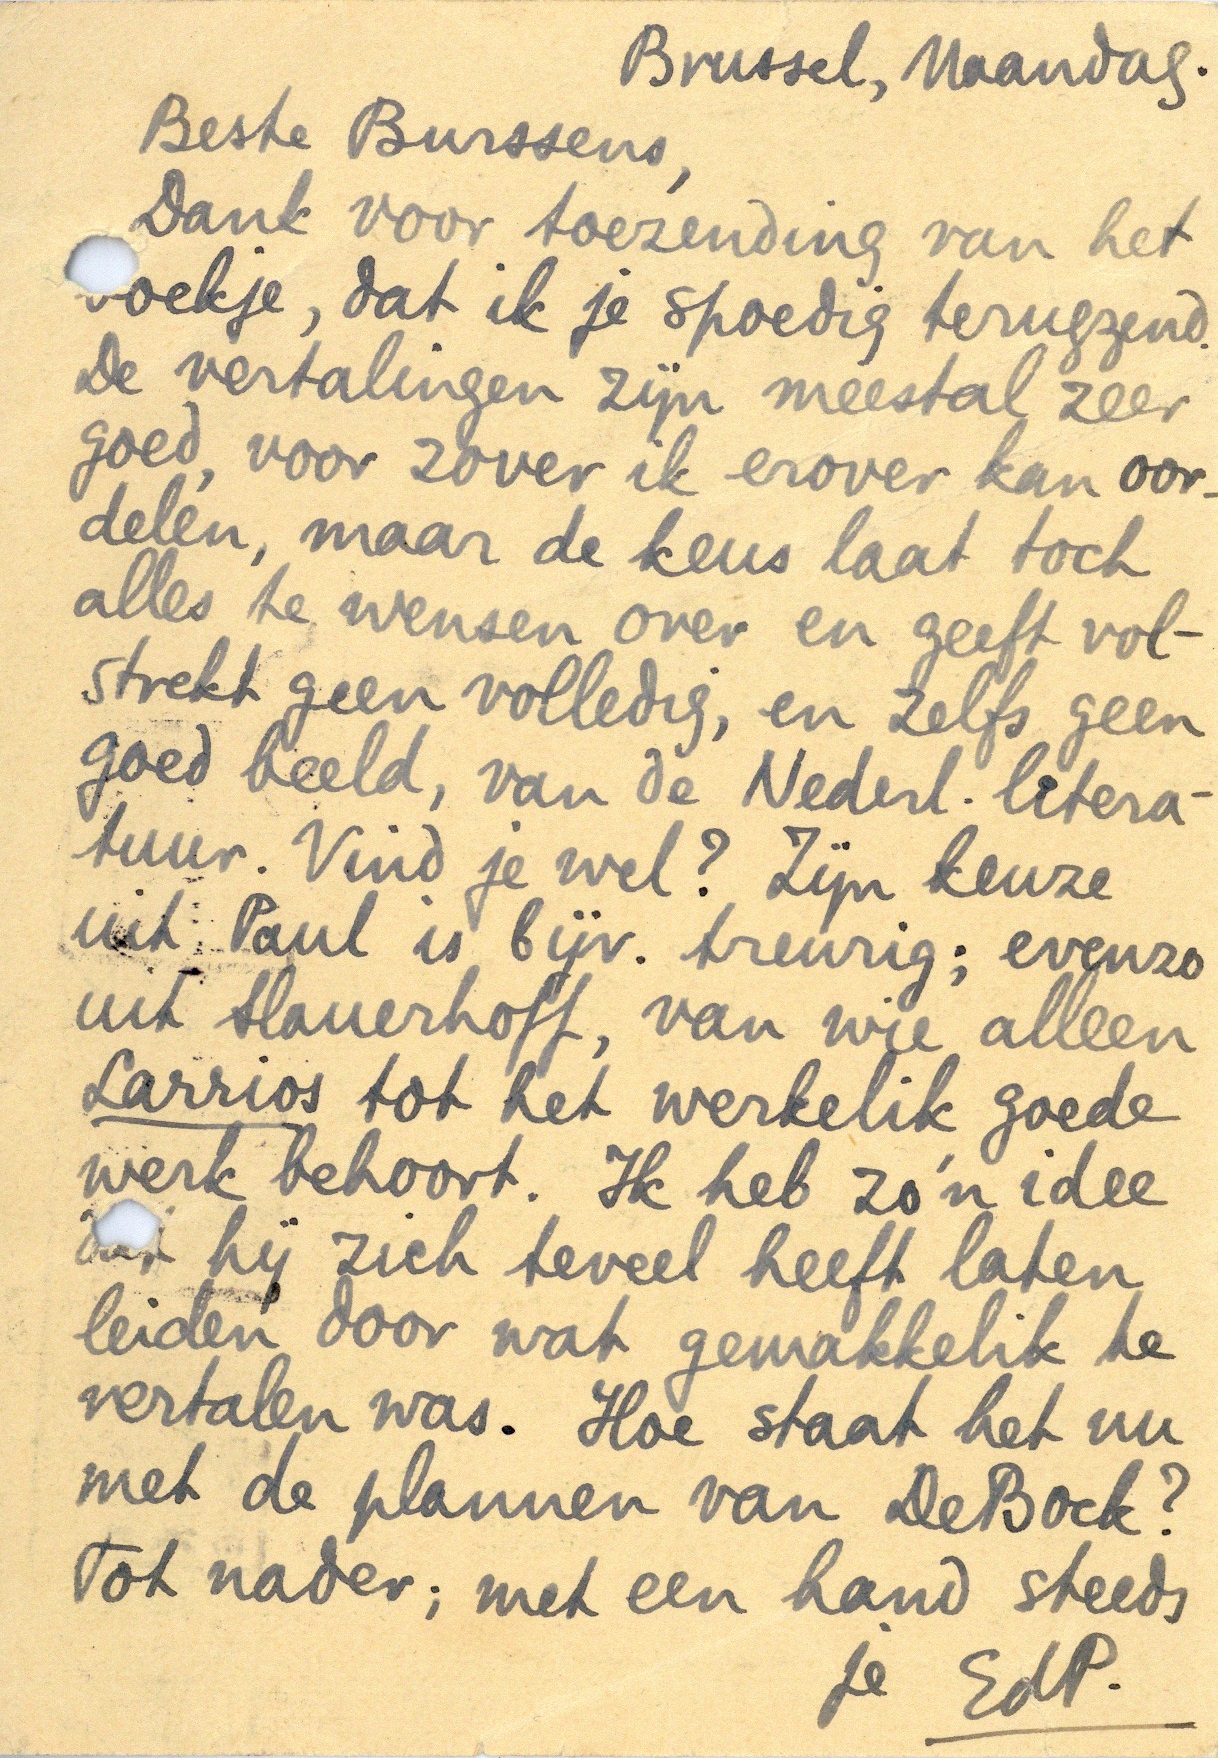 Brussel, Maandag.
Beste Burssens,
Dank voor toezending van het
boekje, dat ik je spoedig terugzend.
De vertalingen zijn meestal zeer
goed, voor zover ik erover kan oor-
delen, maar de keus laat toch
alles te wensen over en geeft vol-
strekt geen volledig, en zelfs geen
goed beeld, van de Nederl. litera-
tuur. Vind je wel? Zijn keuze
uit Paul is bijv. treurig; evenzo
uit Slauerhoff, van wie alleen
Larrios tot het werkelik goede
werk behoort. Ik heb zo'n idee
dat hij zich teveel heeft laten
leiden door wat gemakkelik te
vertalen was. Hoe staat het nu
met de plannen van DeBock?
Tot nader; met een hand steeds
je EdP.